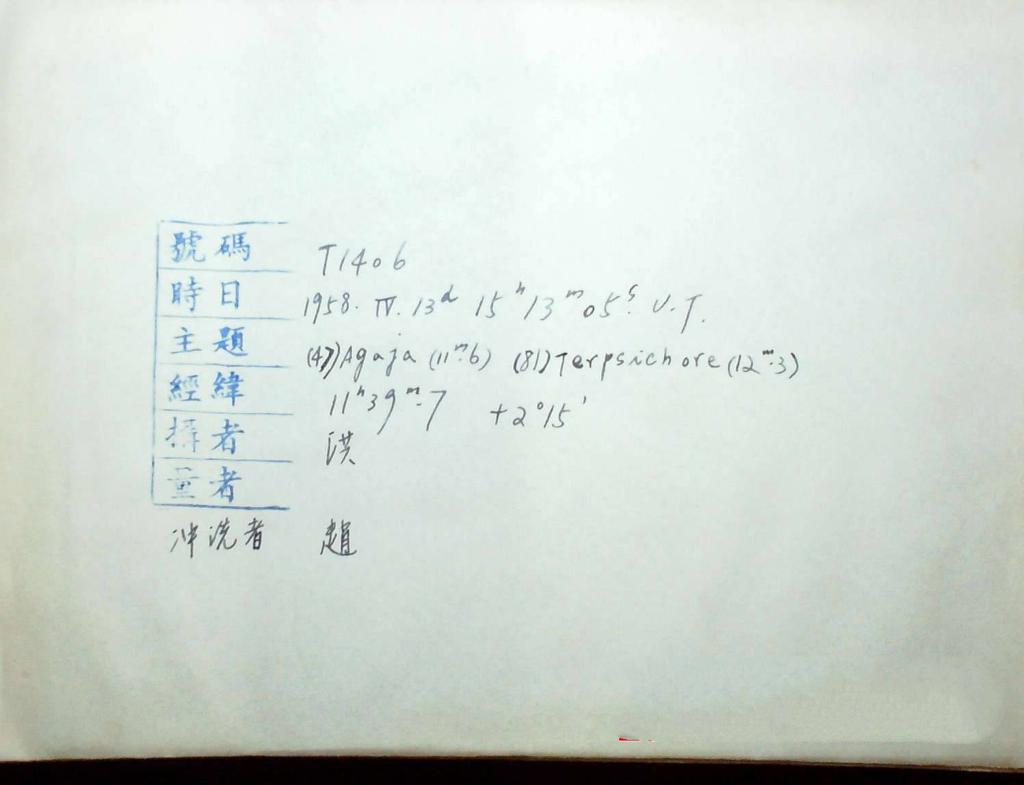 號碼 T1406
時日 1958. IV. 13ᵈ 15ʰ 13ᵐ 05ˢ. U.T.
主題 (47) Agaja (11ᵐ.6) (81) Terpsichore (12ᵐ.3)
經緯 11ʰ39ᵐ.7 +2°15'
攝者 洪
量者
冲洗者 趙